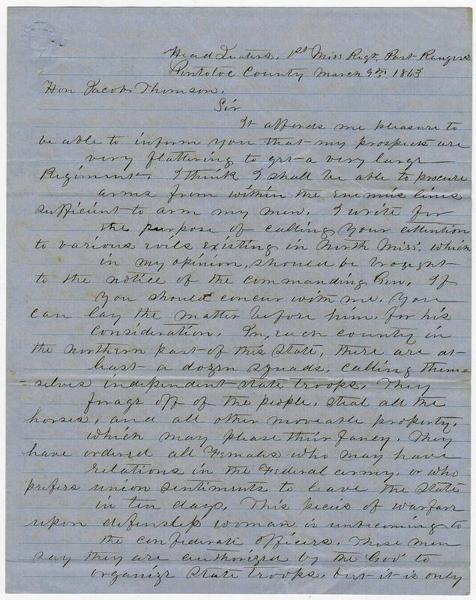 Head Quarters, 1st Miss Regt. Part Rangers
Pontotoc County March 9th 1863
Hon Jacob Thomson,
Sir
It affords me pleasure to
be able to inform you that my prospects are
very flattering to get a very large
Regiment. I think I shall be able to procure
arms from within the enemies lines
sufficient to arm my men. I write for
the purpose of calling your attention
to various evils existing in North Miss. which
in my opinion, should be brought
to the notice of the commanding Gen. If
you should concur with me, you
can lay the matter before him for his
consideration. In, each county in
the northern part of this State, there are at
least a dozen squads, calling them=
=selves independent State troops. They
forage off of the people, steal all the
horses, and all other moveable property,
which may please their fancy. They
have ordered all Females who may have
relations in the Federal army, or who
prefers union sentiments to leave the State
in ten days. This piece of warfare
upon defensless woman is unbecoming to
the confederate officers. These men
say they are authorized by the Gov to
organize State troops, but it is only